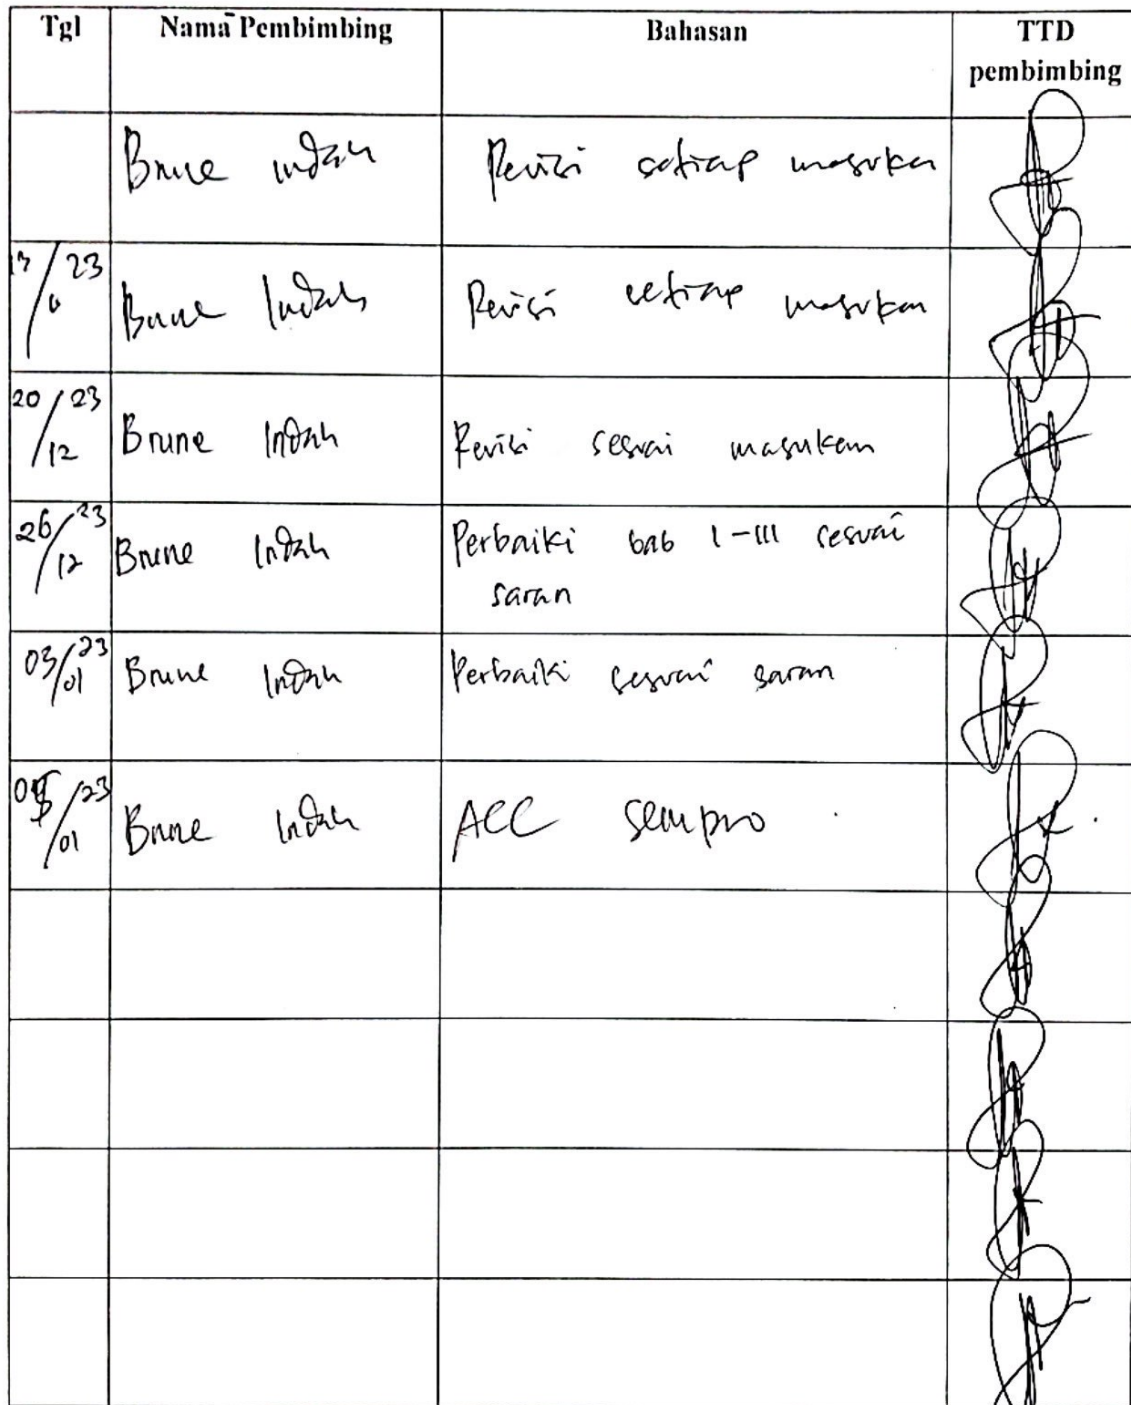 Tgl Nama Pembimbing Bahasan TTD
pembimbing
Brune Indah Revisi setiap masukan
23 Brune Indah Revisi setiap masukan
20/12 23 Brune Indah Revisi sesuai masukan
26/12 23 Brune Indah Perbaiki bab I-III sesuai
saran
03/01 23 Brune Indah Perbaiki sesuai saran
/01 23 Brune Indah ACC sempro